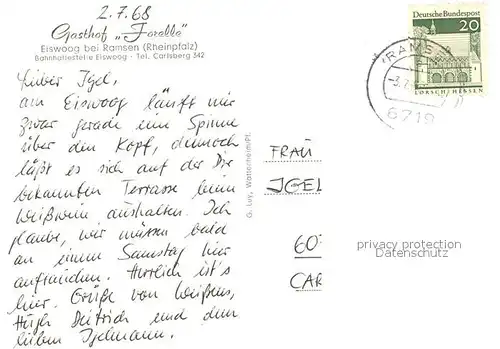 2.7.68
Gasthof „Forelle"
Eiswoog bei Ramsen (Rheinpfalz)
Bahnhaltestelle Eiswoog - Tel. Carlsberg 342
Lieber Igel,
am Eiswoog läuft mir
zwar gerade eine Spinne
über den Kopf, dennoch
läßt es sich auf der Dir
bekannten Terrasse beim
Weißwein aushalten. Ich
glaube, wir müssen bald
an einem Samstag hier
aufkreuzen. Herrlich ist's
hier. Grüße von
Hugh Dietrich und dem
lieben Igelmann.
G. Luy, Wattenheim/Pf.
Deutsche Bundespost
20
LORSCH/HESSEN
RAMSEN
6719
FRAU
IGEL
60
CAR
privacy protection
Datenschutz